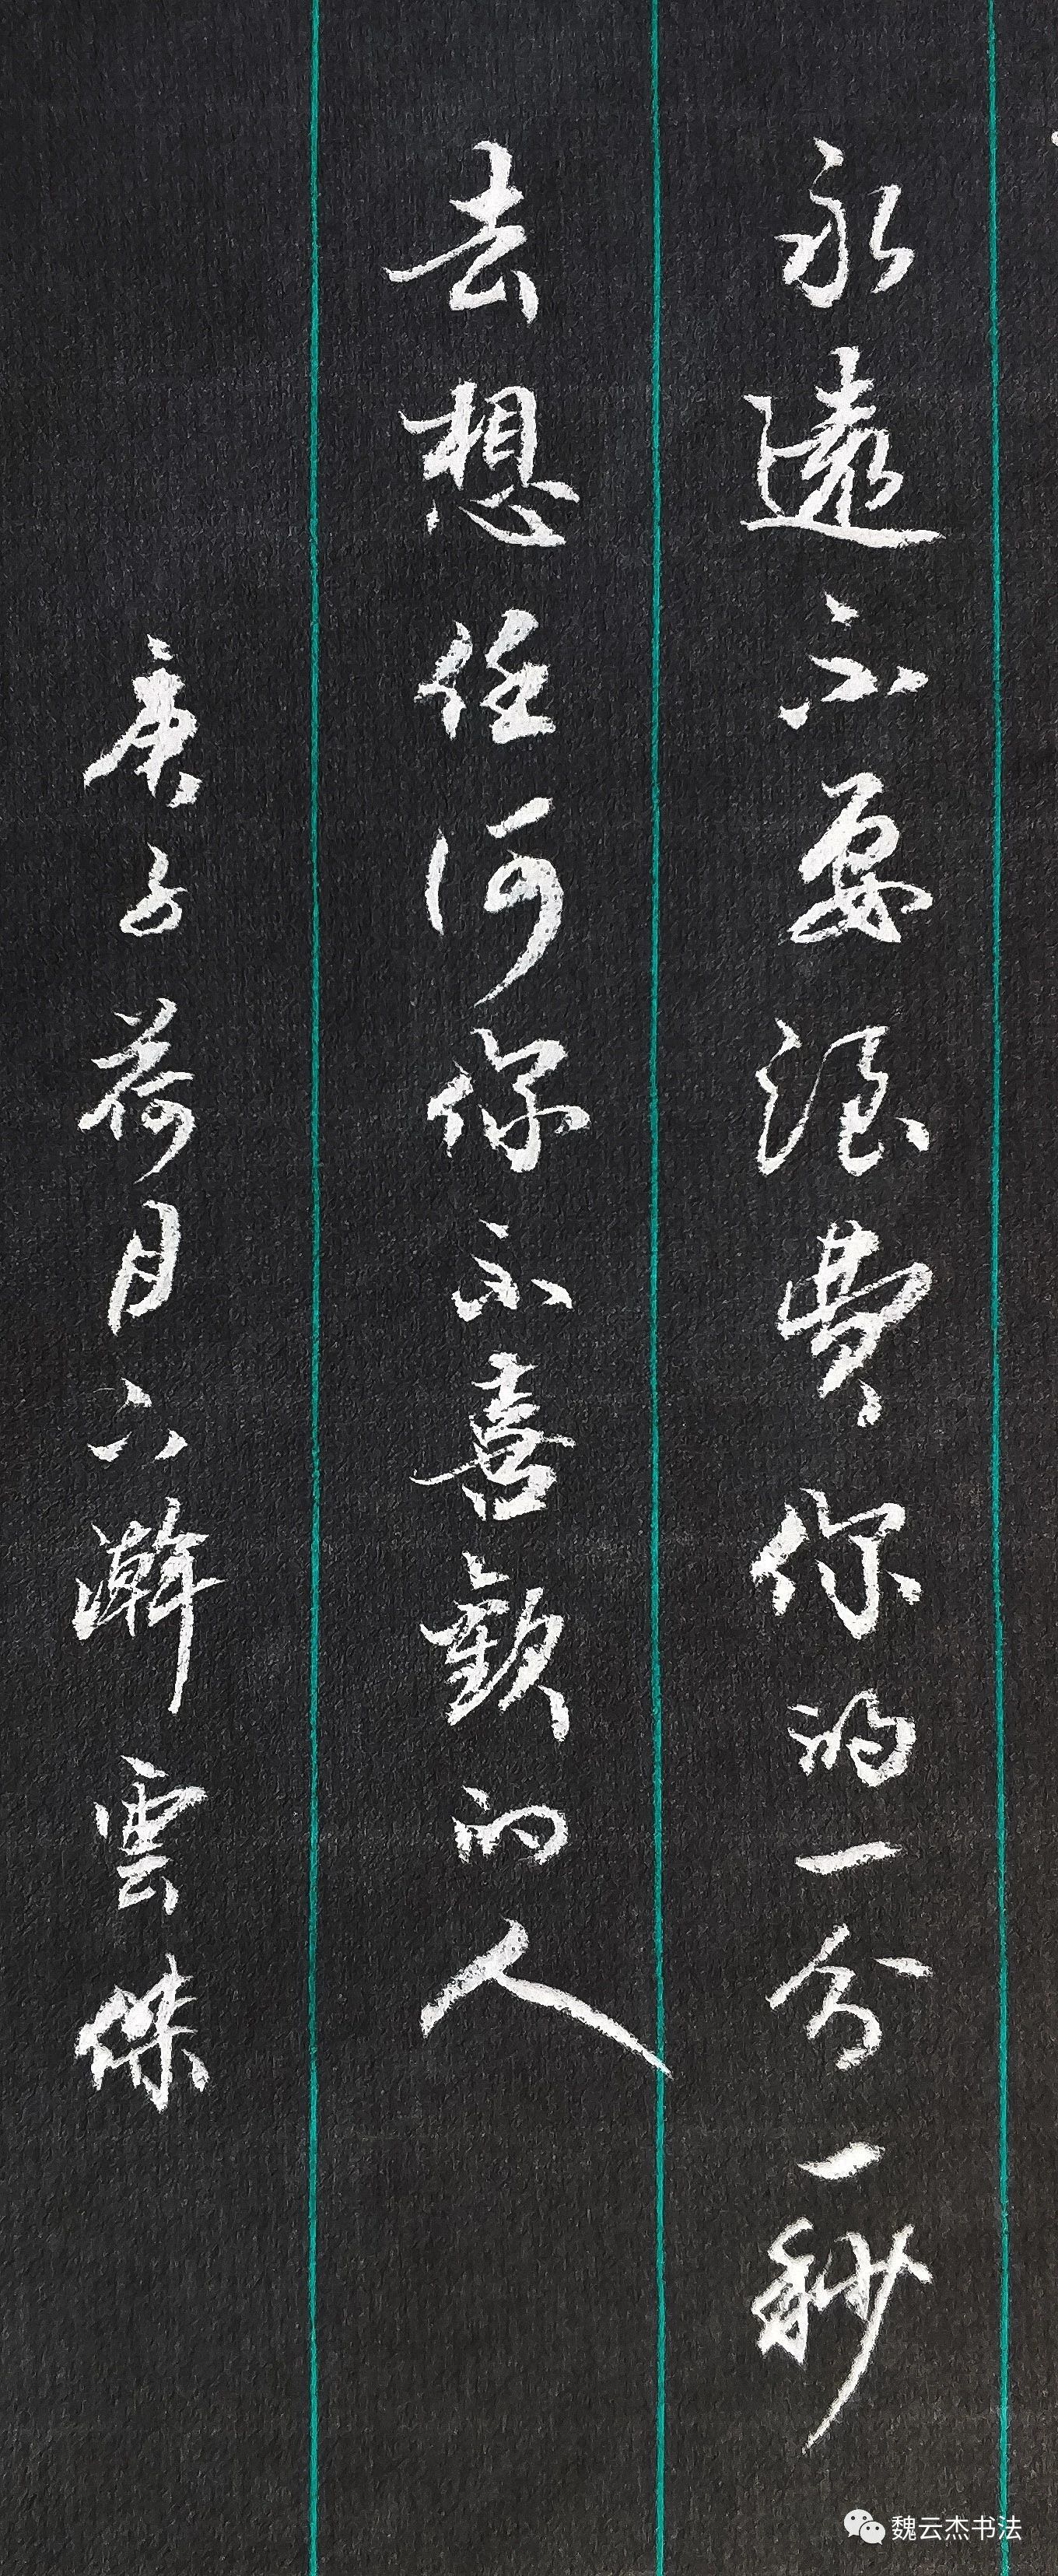 永遠不要浪費你的一分一秒
去想任何你不喜歡的人
庚子荷月六瀚雲傑
魏云杰书法